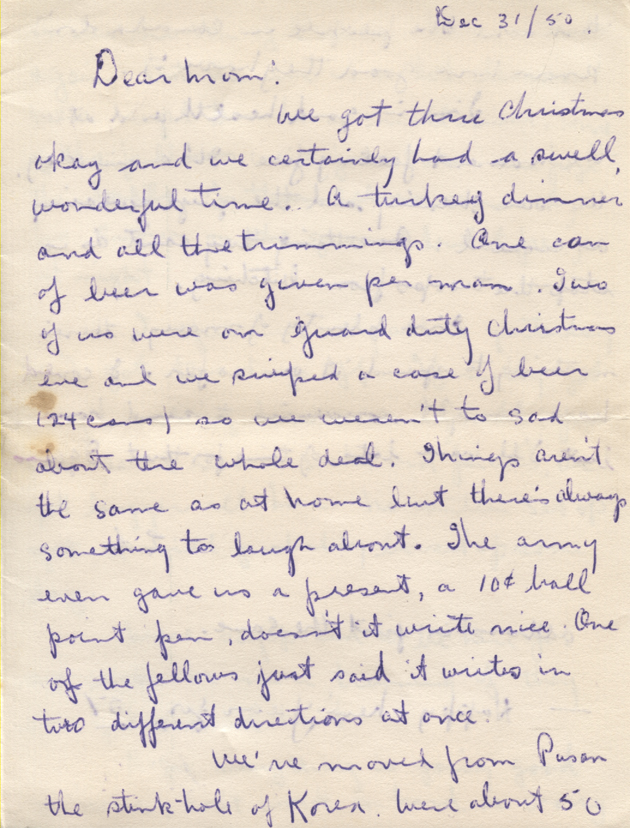 Dec 31/50.
Dear Mom:
We got thru Christmas
okay and we certainly had a swell,
wonderful time. A turkey dinner
and all the trimmings. One can
of beer was given per man. Two
of us were on guard duty Christmas
eve and we swiped a case of beer
(24 cans) so we weren't to sad
about the whole deal. Things aren't
the same as at home but there's always
something to laugh about. The army
even gave us a present, a 10¢ ball
point pen, doesn't it write nice. One
of the fellows just said it writes in
two different directions at once
We've moved from Pusan
the stink-hole of Korea. Were about 50